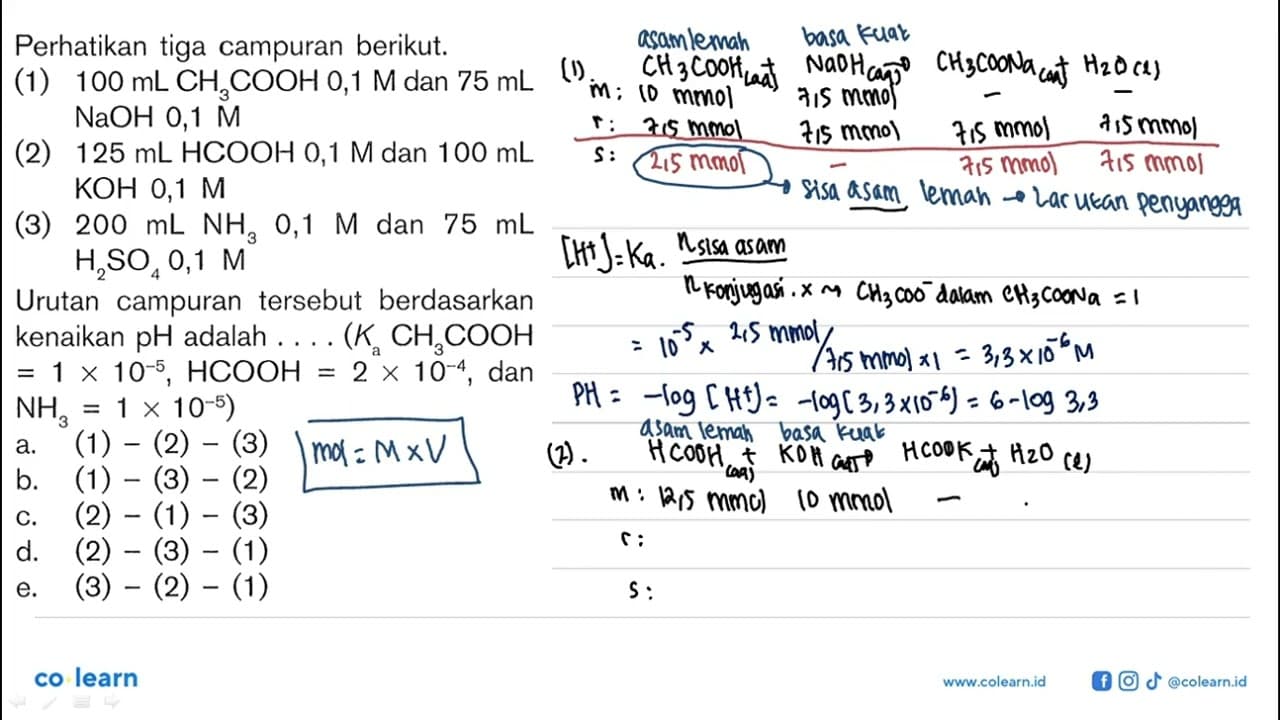 Perhatikan tiga campuran berikut.
(1) 100 mL CH₃COOH 0,1 M dan 75 mL
NaOH 0,1 M
(2) 125 mL HCOOH 0,1 M dan 100 mL
KOH 0,1 M
(3) 200 mL NH₃ 0,1 M dan 75 mL
H₂SO₄ 0,1 M
Urutan campuran tersebut berdasarkan
kenaikan pH adalah . . . . (Kₐ CH₃COOH
= 1 × 10⁻⁵, HCOOH = 2 × 10⁻⁴, dan
NH₃ = 1 × 10⁻⁵)
a. (1) – (2) – (3)
b. (1) – (3) – (2)
c. (2) – (1) – (3)
d. (2) – (3) – (1)
e. (3) – (2) – (1)
mol = M × V
asam lemah basa kuat
(1). CH₃COOH(aq) + NaOH(aq) → CH₃COONa(aq) + H₂O(l)
m: 10 mmol 7,5 mmol – –
r: 7,5 mmol 7,5 mmol 7,5 mmol 7,5 mmol
s: 2,5 mmol – 7,5 mmol 7,5 mmol
→ sisa asam lemah → Larutan penyangga
[H⁺] = Ka . n sisa asam
n konjugasi . x → CH₃COO⁻ dalam CH₃COONa = 1
= 10⁻⁵ × 2,5 mmol / 7,5 mmol × 1 = 3,3 × 10⁻⁶ M
PH = -log [H⁺] = -log (3,3 × 10⁻⁶) = 6 - log 3,3
asam lemah basa kuat
(2). HCOOH(aq) + KOH(aq) → HCOOK(aq) + H₂O(l)
m: 12,5 mmol 10 mmol – .
r:
s:
co learn
www.colearn.id @colearn.id